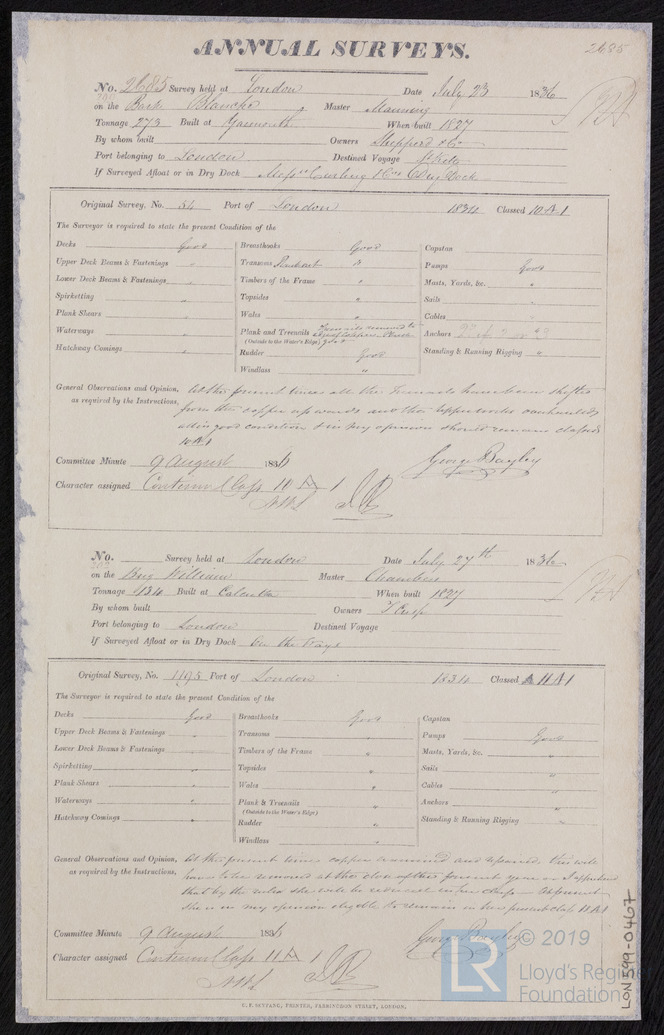 2685
ANNUAL SURVEYS.
No. 2685 Survey held at London Date July 23 1836
on the Bark Blanche Master Manning
Tonnage 273 Built at Yarmouth When built 1827
By whom built Owners Sheppard & Co
Port belonging to London Destined Voyage
If Surveyed Afloat or in Dry Dock Messrs Curling & Co Dry Dock
Original Survey, No. 54 Port of London 1834 Classed 10 A 1
The Surveyor is required to state the present Condition of the
Decks Good
Upper Deck Beams & Fastenings "
Lower Deck Beams & Fastenings "
Spirketting "
Plank Shears "
Waterways "
Hatchway Comings "
Breasthooks Good
Transoms "
Timbers of the Frame "
Topsides "
Wales "
Plank and Treenails Treenails removed to
(Outside to the Water's Edge) good
Rudder Good
Windlass "
Capstan
Pumps Good
Masts, Yards, &c. "
Sails "
Cables "
Anchors
Standing & Running Rigging "
General Observations and Opinion, At the present time all the Treenails have been shifted
as required by the Instructions, from the copper upwards and the Topsides overhauled,
all in good condition & in my opinion should remain classed
10 A 1
George Bayley
Committee Minute 9 August 1836
Character assigned Continued Class 10 A 1
No. Survey held at London Date July 27th 1836
on the Brig William Master Chambers
Tonnage 434 Built at Calcutta When built 1827
By whom built Owners
Port belonging to London Destined Voyage
If Surveyed Afloat or in Dry Dock On the Ways
Original Survey, No. 1195 Port of London 1834 Classed 11 A 1
The Surveyor is required to state the present Condition of the
Decks Good
Upper Deck Beams & Fastenings "
Lower Deck Beams & Fastenings
Spirketting "
Plank Shears "
Waterways "
Hatchway Comings "
Breasthooks Good
Transoms "
Timbers of the Frame "
Topsides "
Wales "
Plank & Treenails "
(Outside to the Water's Edge)
Rudder "
Windlass "
Capstan
Pumps Good
Masts, Yards, &c. "
Sails "
Cables "
Anchors "
Standing & Running Rigging "
General Observations and Opinion, At the present time copper examined and repaired this will
as required by the Instructions, have to be removed at the close of the present year or I apprehend
that by the rules she will be reduced in her class — at present
she is in my opinion eligible to remain in her present class 11 A 1
George Bayley
Committee Minute 9 August 1836
Character assigned Continued Class 11 A 1
LON 599-0467
LR © 2019
Lloyd's Register
Foundation